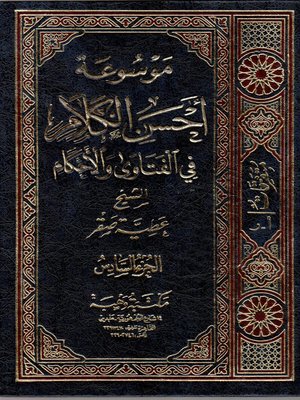 موسوعة
أحسن الكلام
في الفتاوى والأحكام
الشيخ
عطية صقر
الجزء السادس
مكتبة وهبة